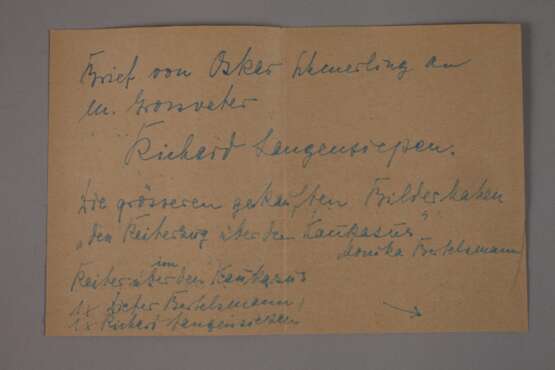 Brief von Oskar Schmerling an
m. Grossvater
Richard Langensiepen.
Die grösseren gekauften Bilder haben
„den Reiterzug über den Kaukasus“
Monika Bertelsmann
Reiter über im den Kaukasus
1x Dieter Bertelsmann
1x Richard Langensiepen